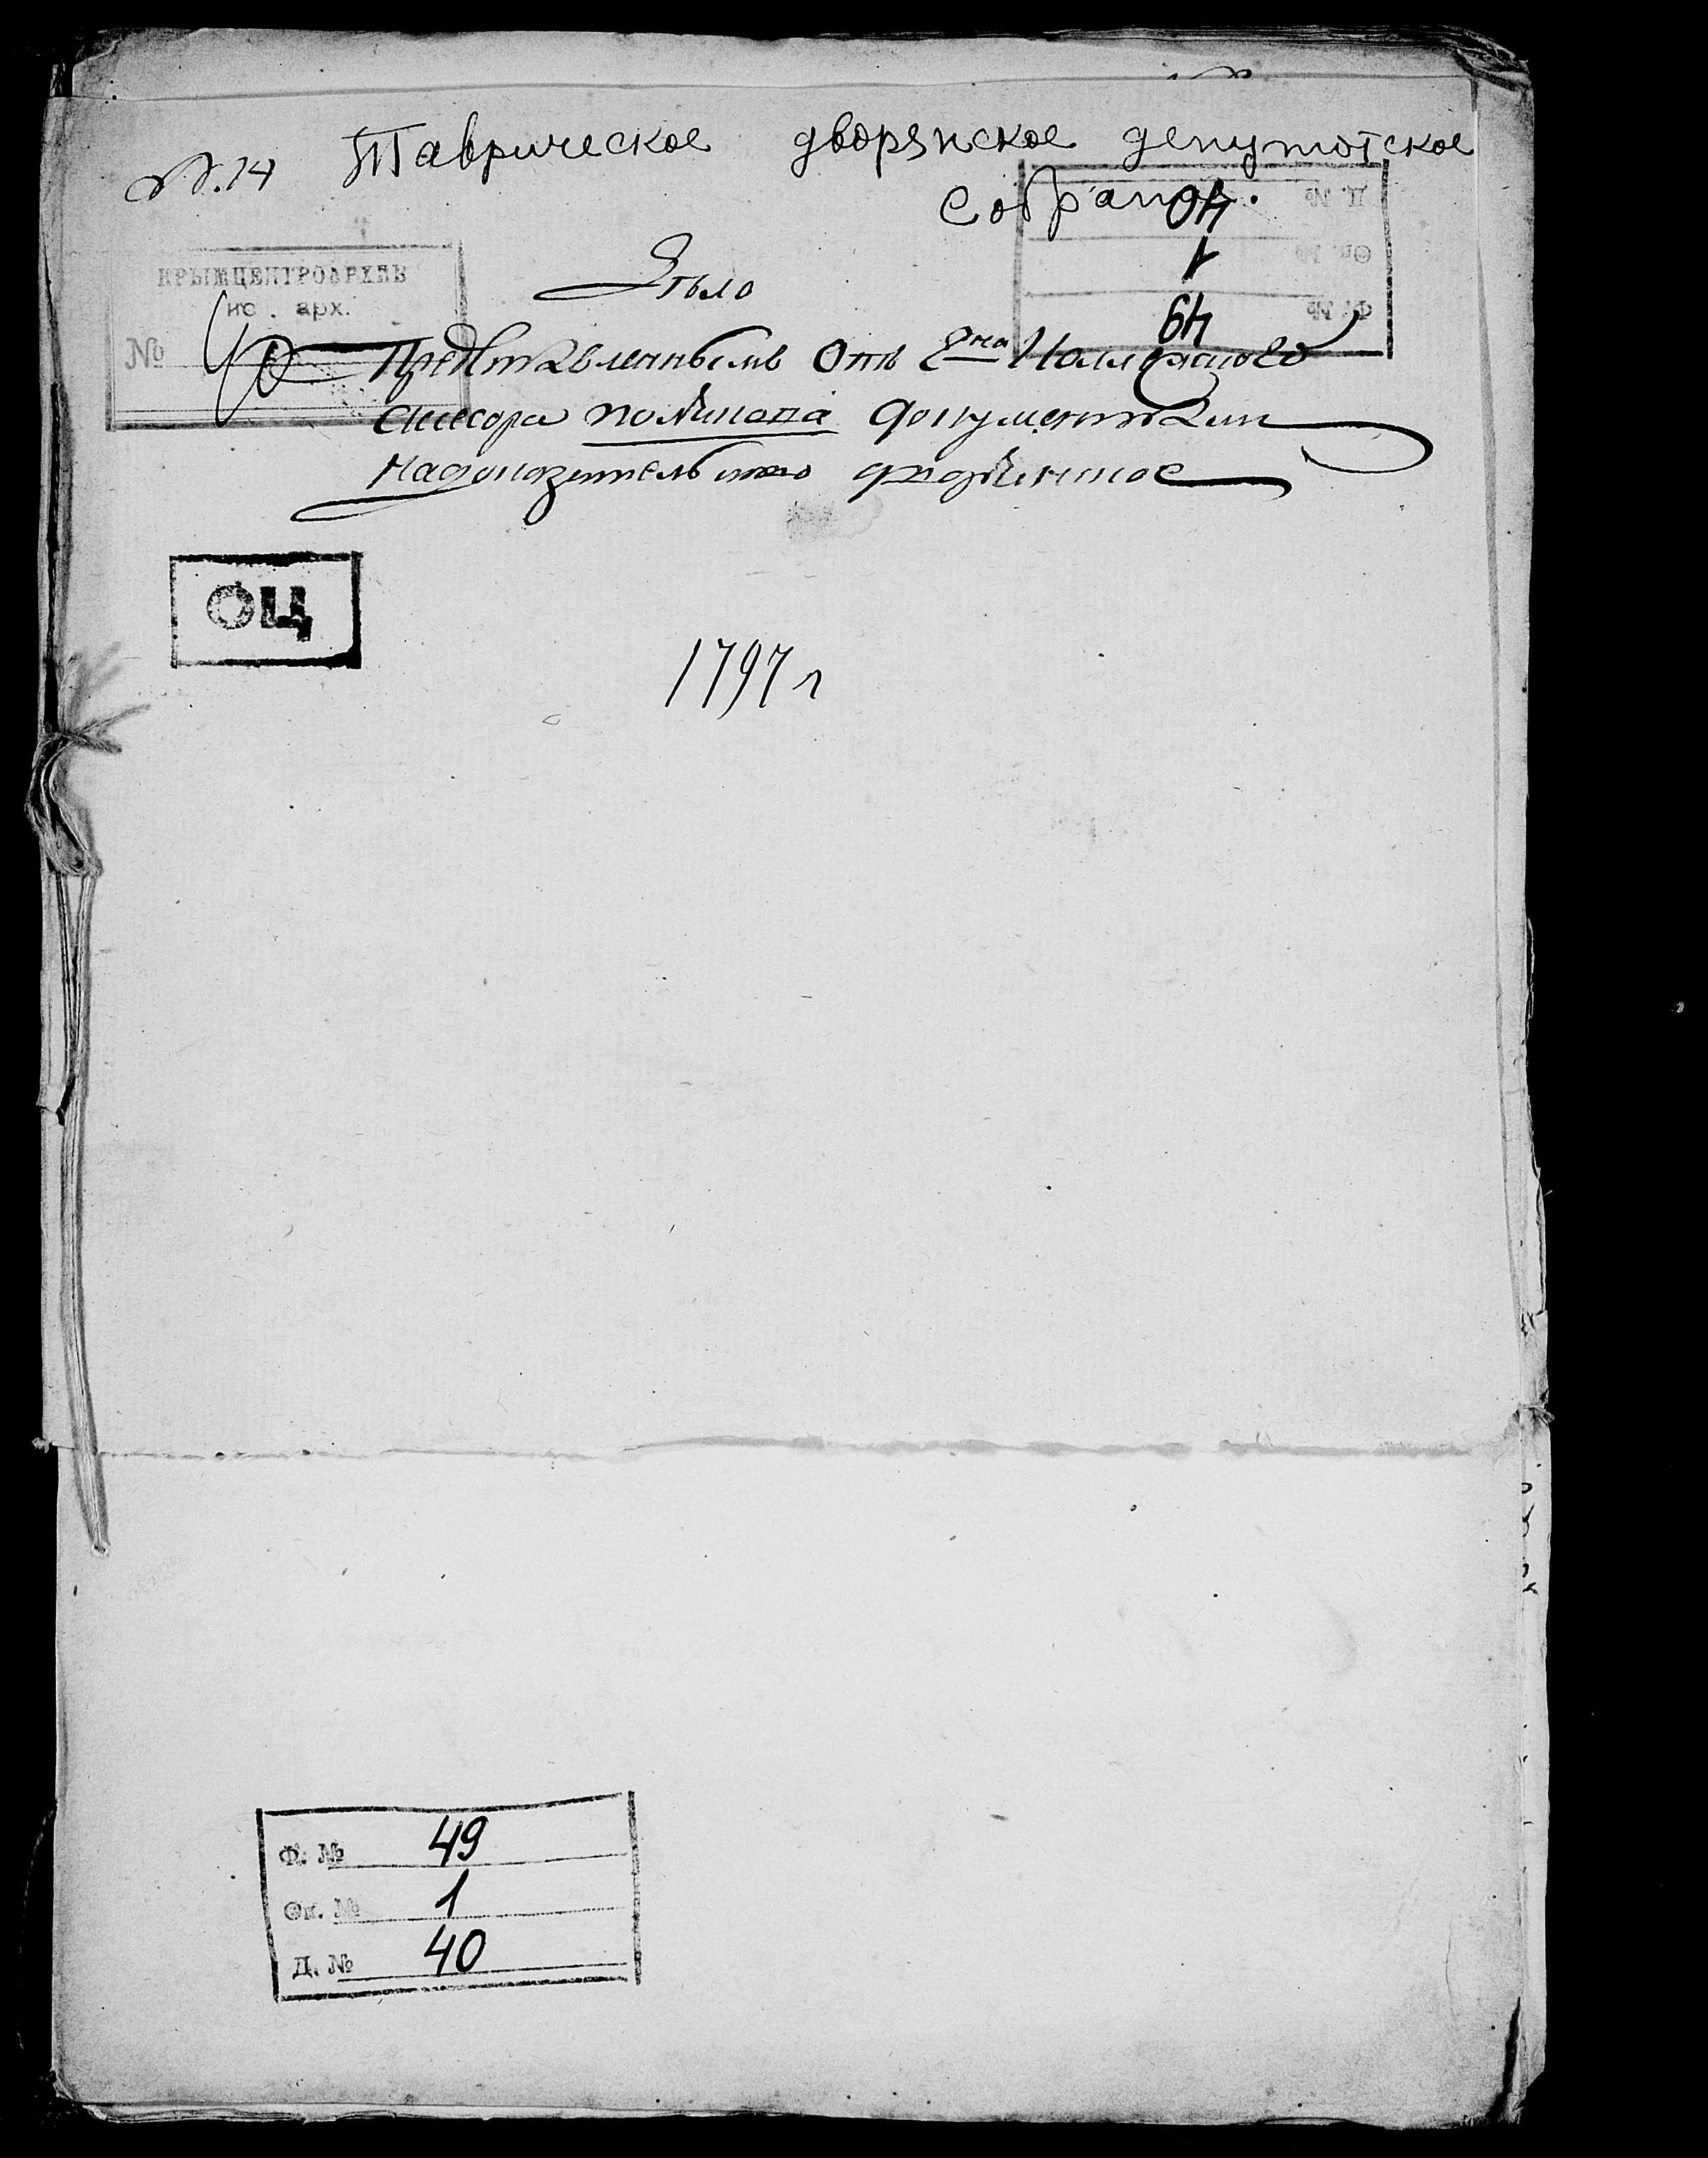 №. 14 Таврическое дворянское депутатское
собрание.
КРЫМЦЕНТРОАРХИВ
ис. арх.
№
Д. № 40
Оп. № 1
Ф. № 49
Дѣло
О Представленнымъ Отъ Гдна Коллежского
Асесора документами
надоказательство дворянское
ОЦ
1797 г
Ф. № 49
Оп. № 1
Д. № 40